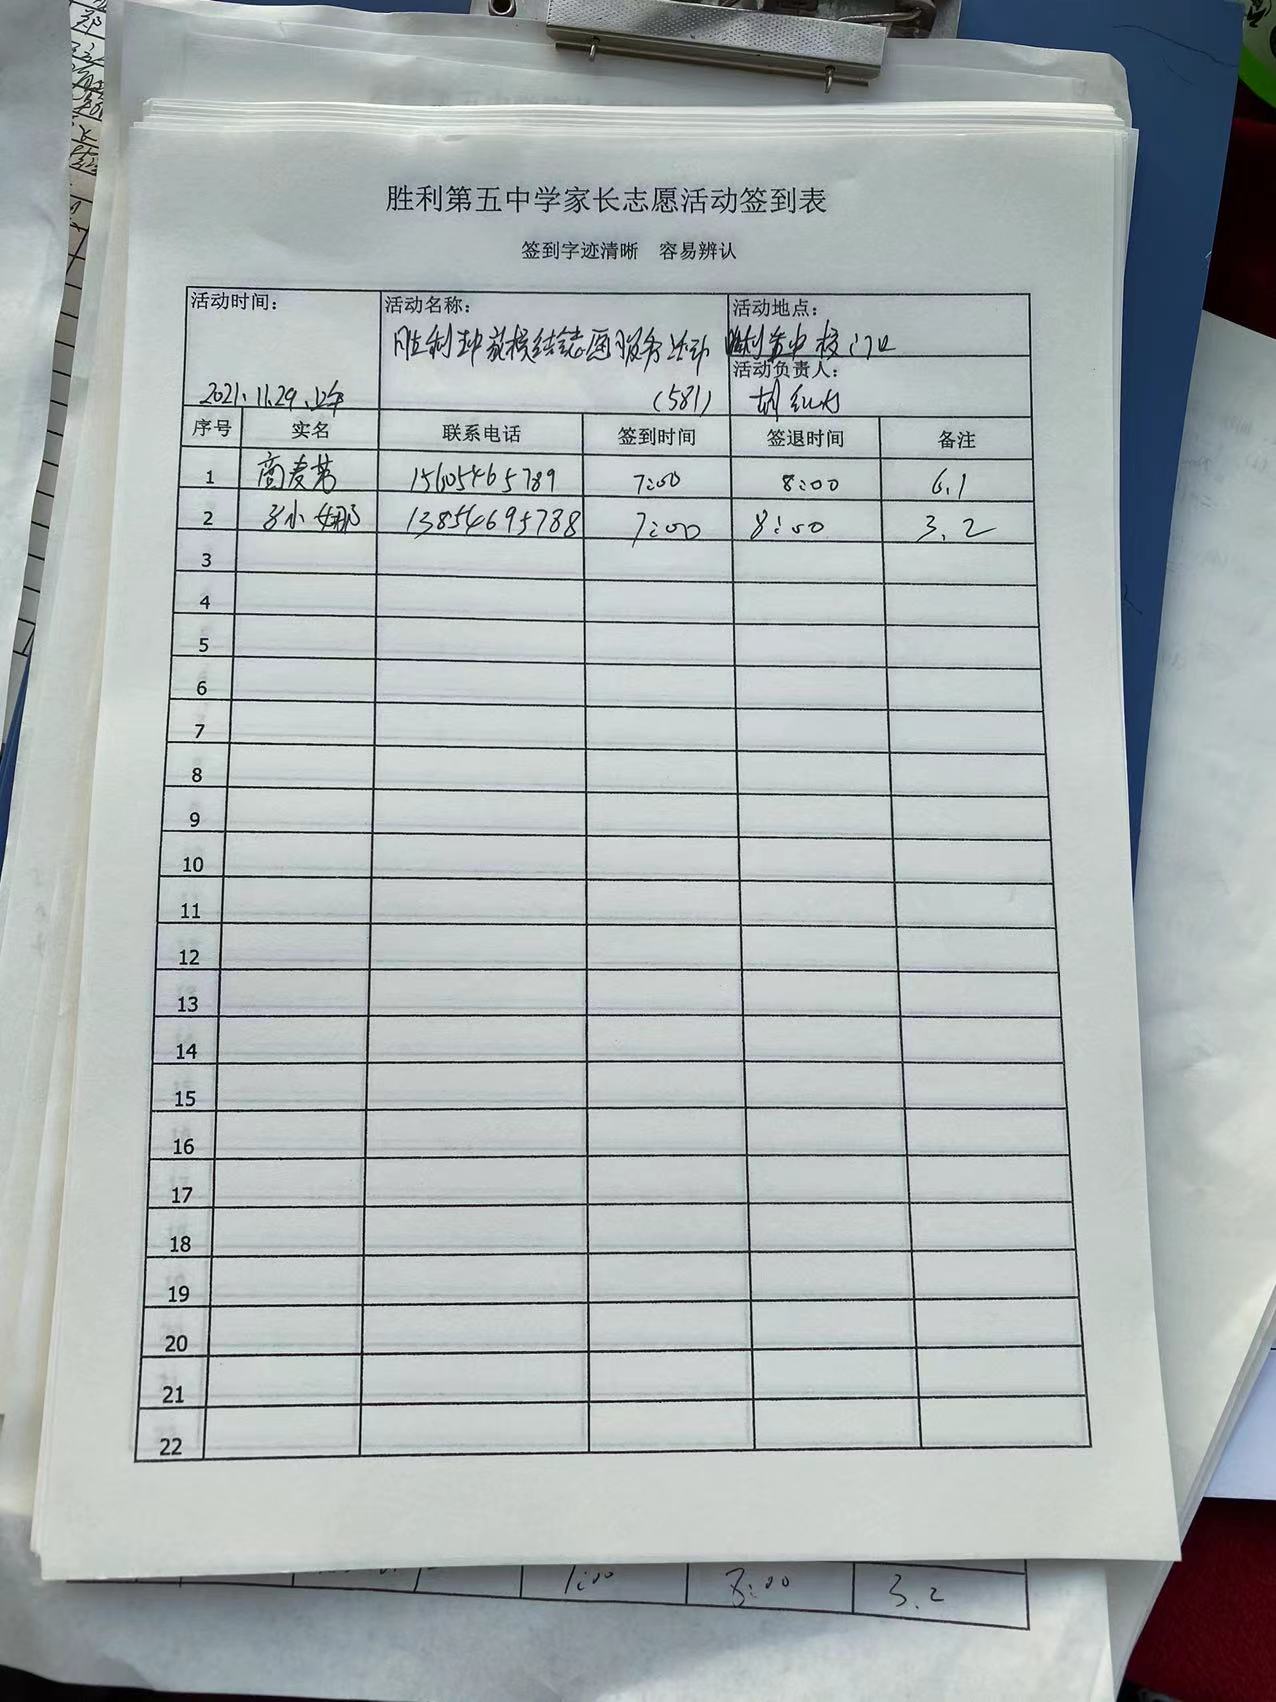 胜利第五中学家长志愿活动签到表
签到字迹清晰 容易辨认
活动时间：
2021.11.29.上午
活动名称：
胜利五中 志愿服务活动
(581)
活动地点：
胜利五中校门口
活动负责人：
胡红
序号 实名 联系电话 签到时间 签退时间 备注
1 15605465789 7:00 8:00 6.1
2 小娜 13854695788 7:00 8:00 3.2
3
4
5
6
7
8
9
10
11
12
13
14
15
16
17
18
19
20
21
22
7:00 8:00 3.2